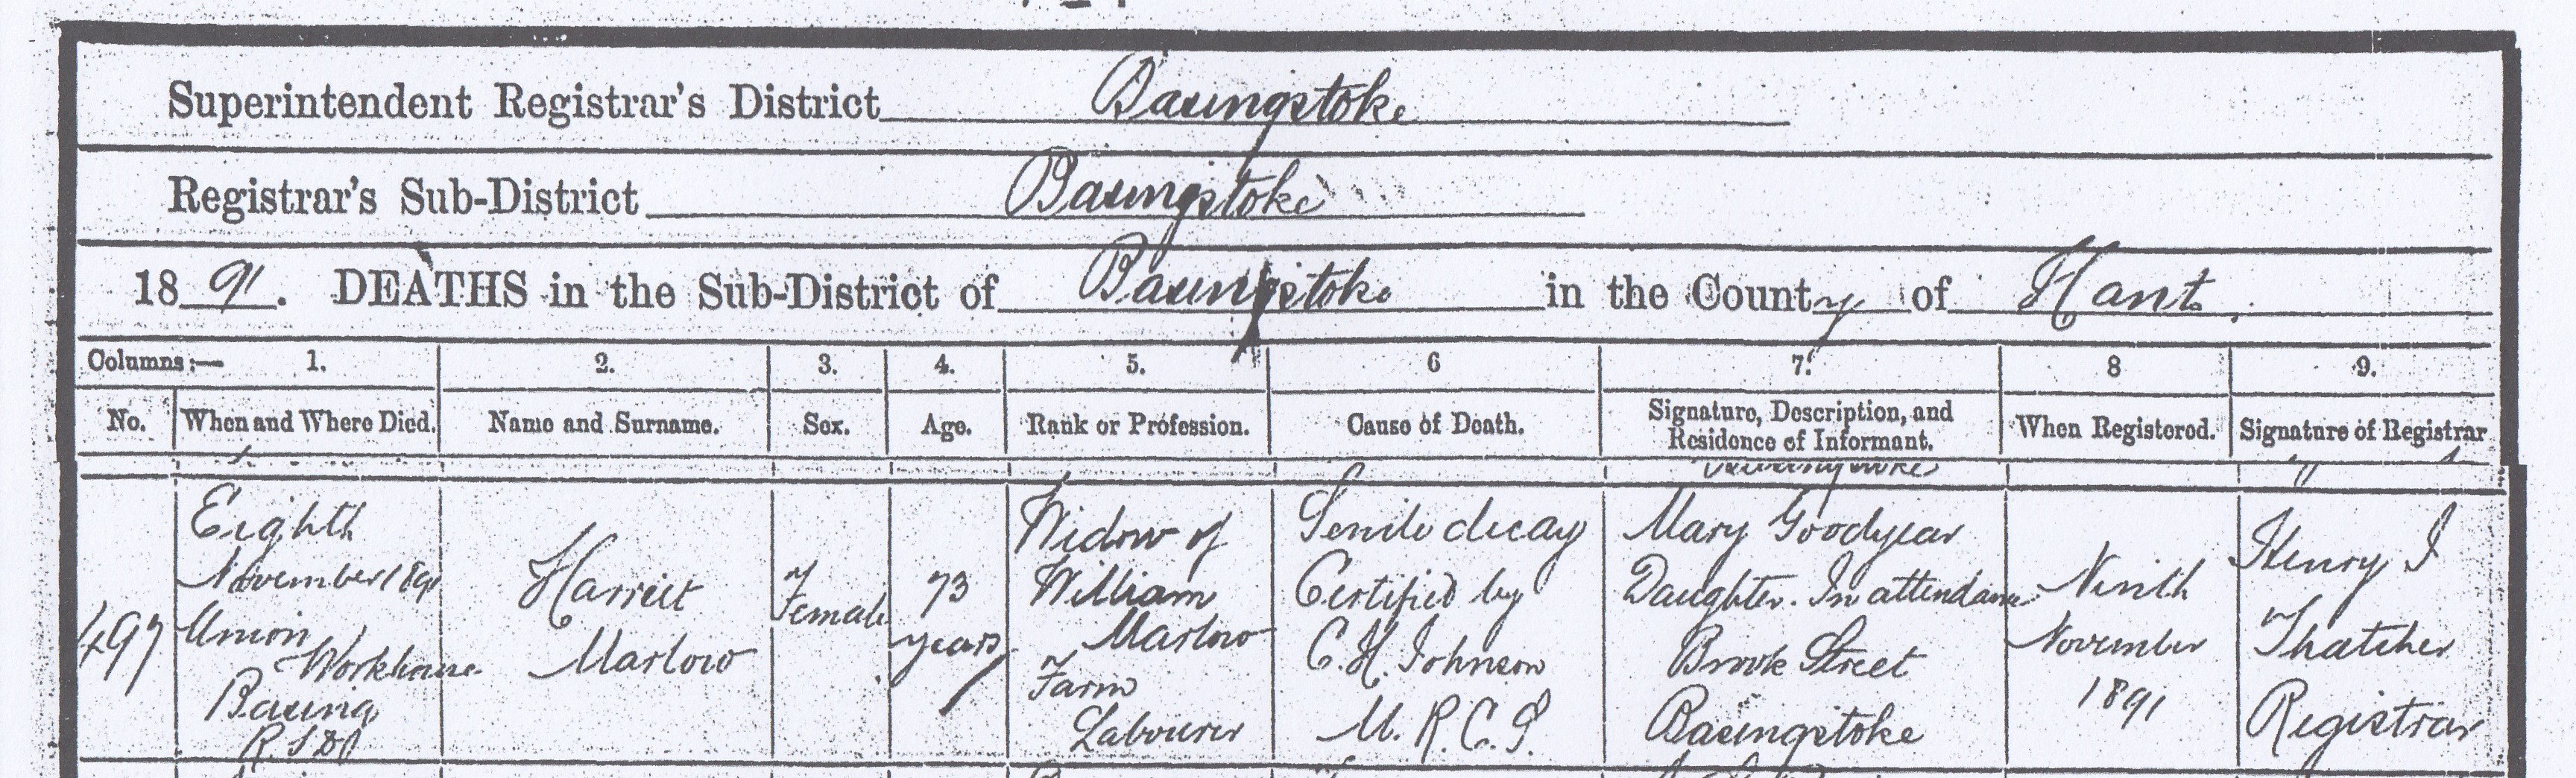 Superintendent Registrar's District Basingstoke
Registrar's Sub-District Basingstoke
1891. DEATHS in the Sub-District of Basingstoke in the County of Hants.
Columns:— 1. 2. 3. 4. 5. 6 7. 8 9.
No. When and Where Died. Name and Surname. Sex. Age. Rank or Profession. Cause of Death. Signature, Description, and Residence of Informant. When Registered. Signature of Registrar
497
Eighth
November 1891
Union
Workhouse
Basing
R.S.D
Harriet
Marlow
Female
73
years
Widow of
William
Marlow
Farm
Labourer
Senile decay
Certified by
C. H. Johnson
M. R. C. S.
Mary Goodyear
Daughter. In attendance
Brook Street
Basingstoke
Ninth
November
1891
Henry I
Thatcher
Registrar